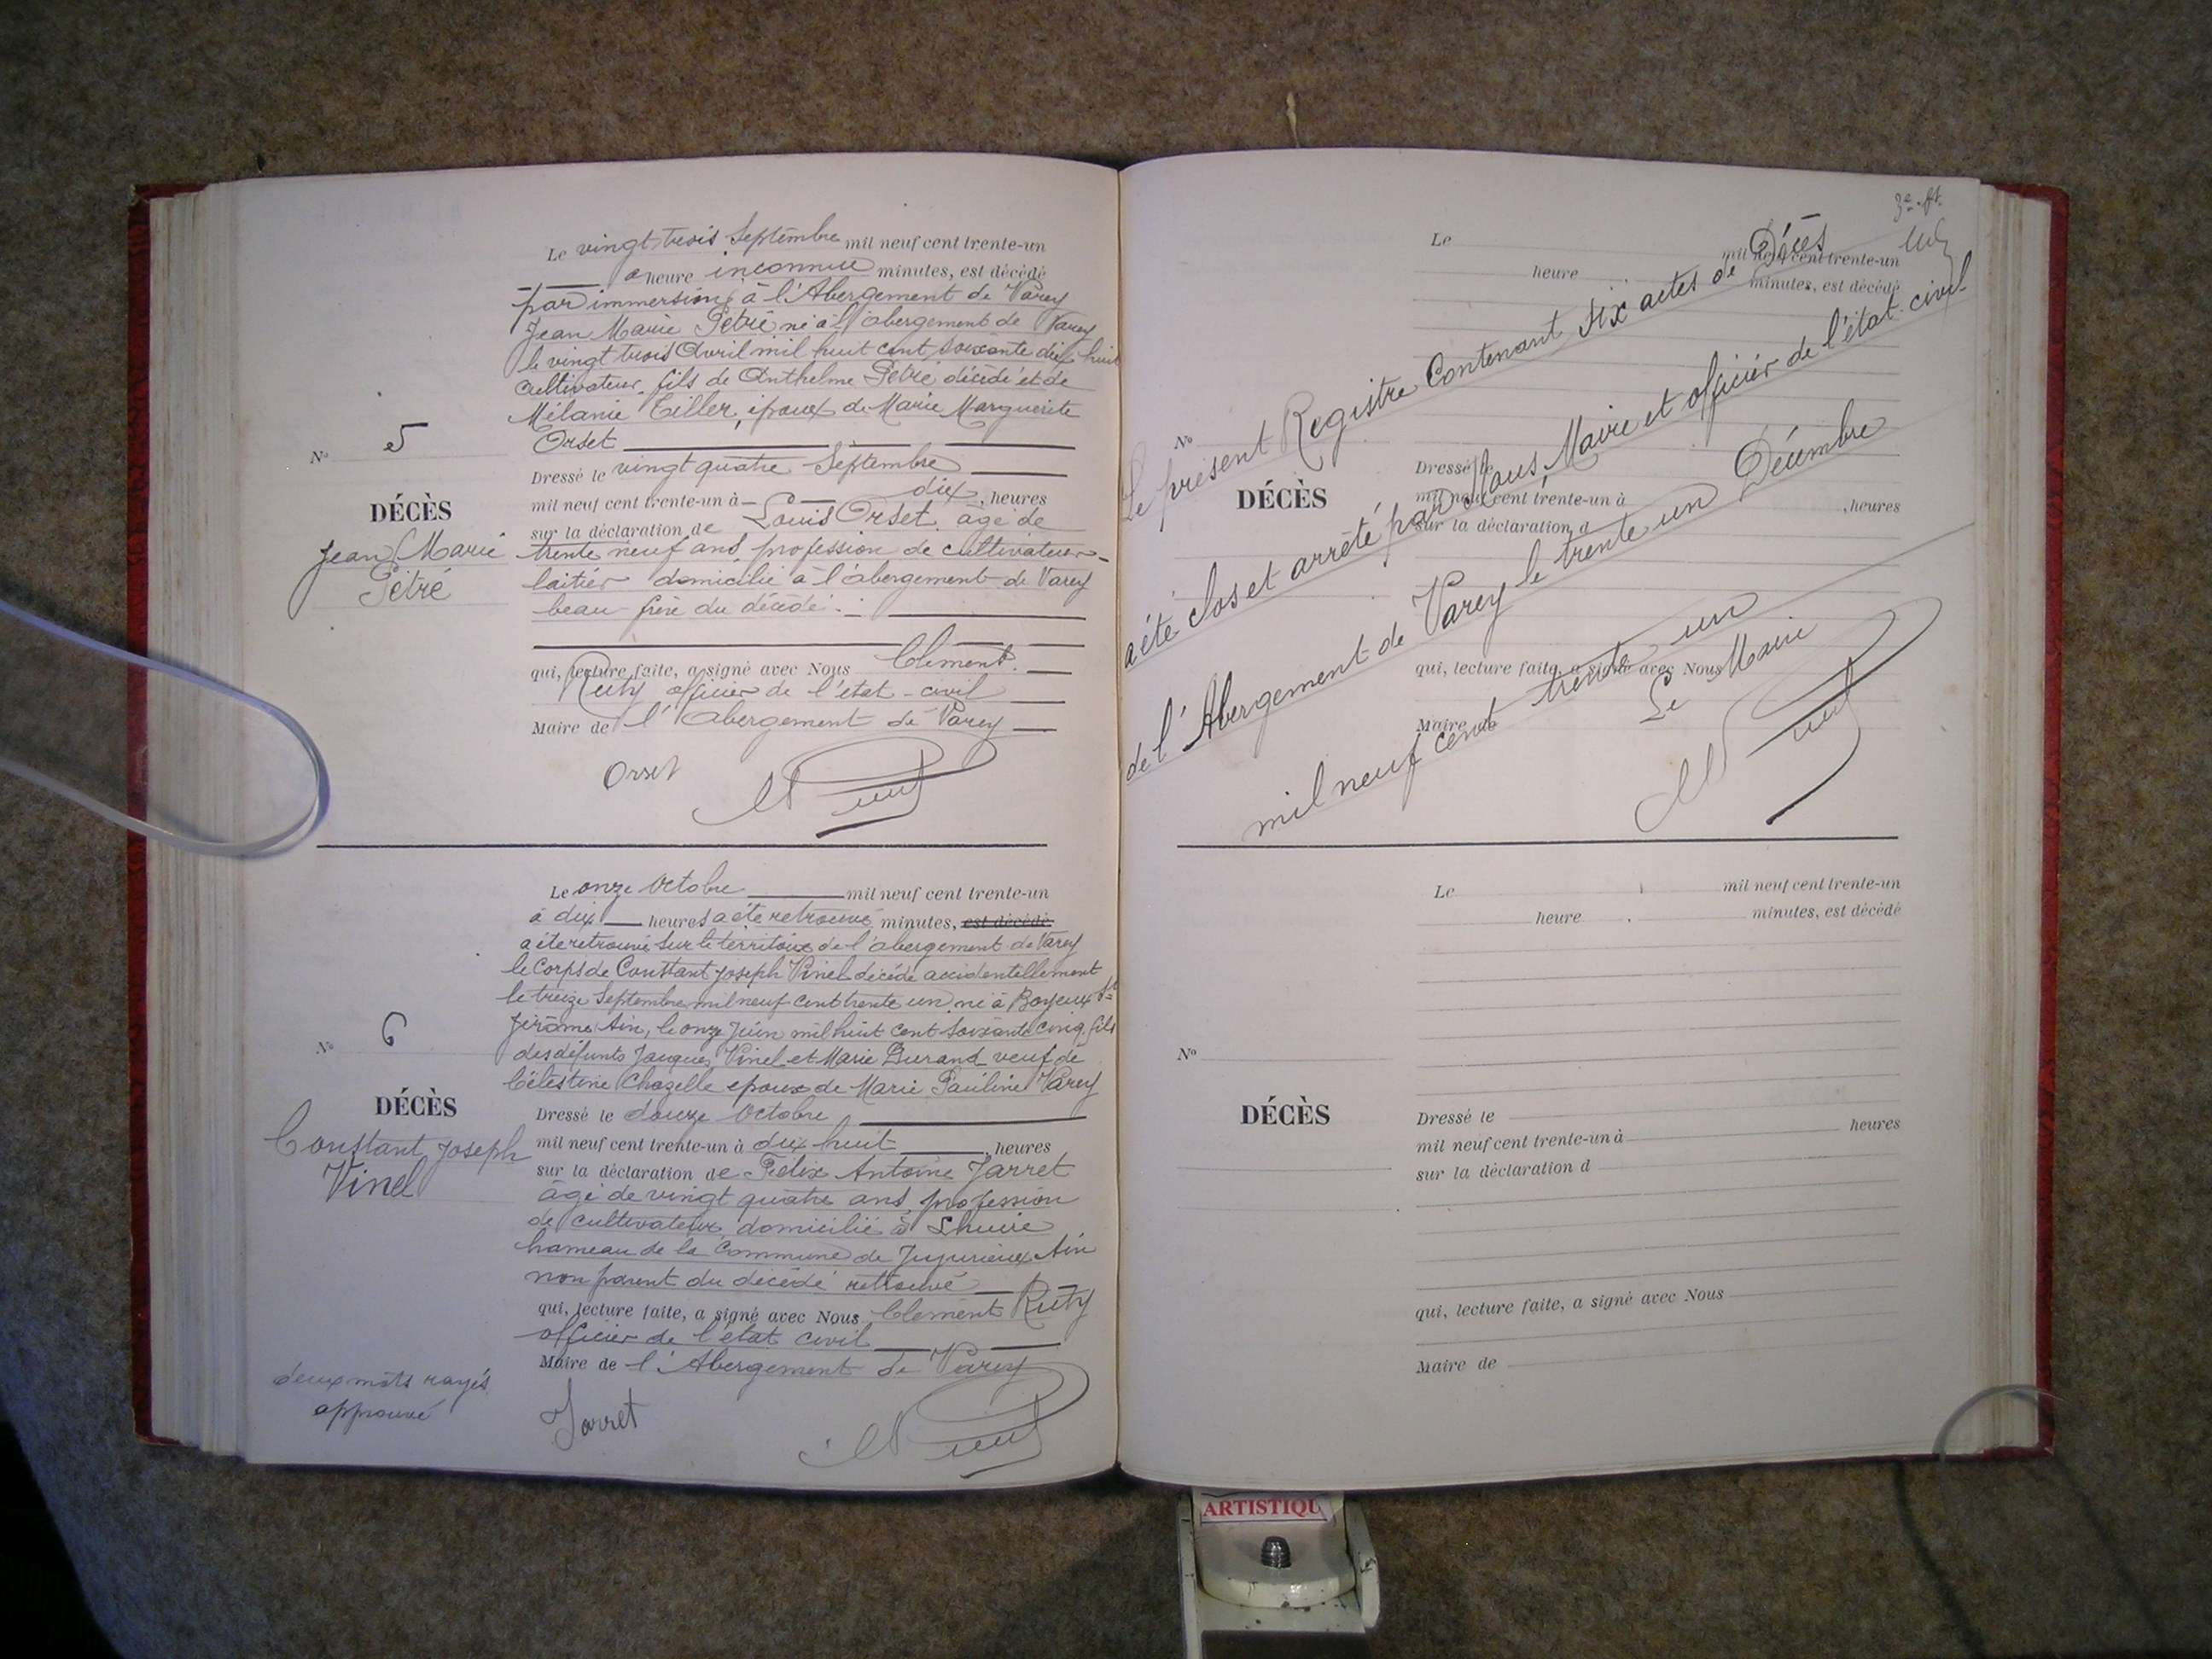 Le vingt trois Septembre mil neuf cent trente-un
à heure inconnue minutes, est décédé
par immersion à l'Abergement de Varey
Jean Marie Pétré né à l'abergement de Varey
le vingt trois Avril mil huit cent soixante dix huit
cultivateur, fils de Anthelme Pétré décédé et de
Mélanie Tiller, époux de Marie Marguerite
Orset
N° 5
DÉCÈS
Jean Marie
Pétré
Dressé le vingt quatre Septembre
mil neuf cent trente-un à dix, heures
sur la déclaration de Louis Orset, âgé de
trente neuf ans profession de cultivateur-
laitier domicilié à l'abergement de Varey
beau frère du décédé.
qui, lecture faite, a signé avec Nous Clément
Ruty officier de l'état-civil
Maire de l'Abergement de Varey
Orset
Le onze Octobre mil neuf cent trente-un
à dix heures a été retrouvé minutes, est décédé
a été retrouvé sur le territoire de l'abergement de Varey
le Corps de Constant Joseph Vinel décédé accidentellement
le treize Septembre mil neuf cent trente un, né à Boyeux St
Jérôme Ain, le onze Juin mil huit cent soixante cinq, fils
des défunts Jacques Vinel et Marie Durand veuf de
Célestine Chazelle époux de Marie Pauline Varey
N° 6
DÉCÈS
Constant Joseph
Vinel
Dressé le douze Octobre
mil neuf cent trente-un à dix huit, heures
sur la déclaration de Félix Antoine Jarret
âgé de vingt quatre ans, profession
de cultivateur domicilié à Lhuire
hameau de la Commune de Jujurieux Ain
non parent du décédé retrouvé
qui, lecture faite, a signé avec Nous Clément Ruty
officier de l'état civil
Maire de l'Abergement de Varey
deux mots rayés
approuvé
Jarret
Le présent Registre Contenant six actes de Décès
a été clos et arrêté par Nous, Maire et officier de l'état civil
de l'Abergement de Varey le trente un Décembre
mil neuf cent trente un
Le Maire
Le mil neuf cent trente-un
heure minutes, est décédé
N°
DÉCÈS
Dressé le
mil neuf cent trente-un à , heures
sur la déclaration d
qui, lecture faite, a signé avec Nous
Maire de
Le mil neuf cent trente-un
heure minutes, est décédé
N°
DÉCÈS
Dressé le
mil neuf cent trente-un à heures
sur la déclaration d
qui, lecture faite, a signé avec Nous
Maire de
ARTISTIQU